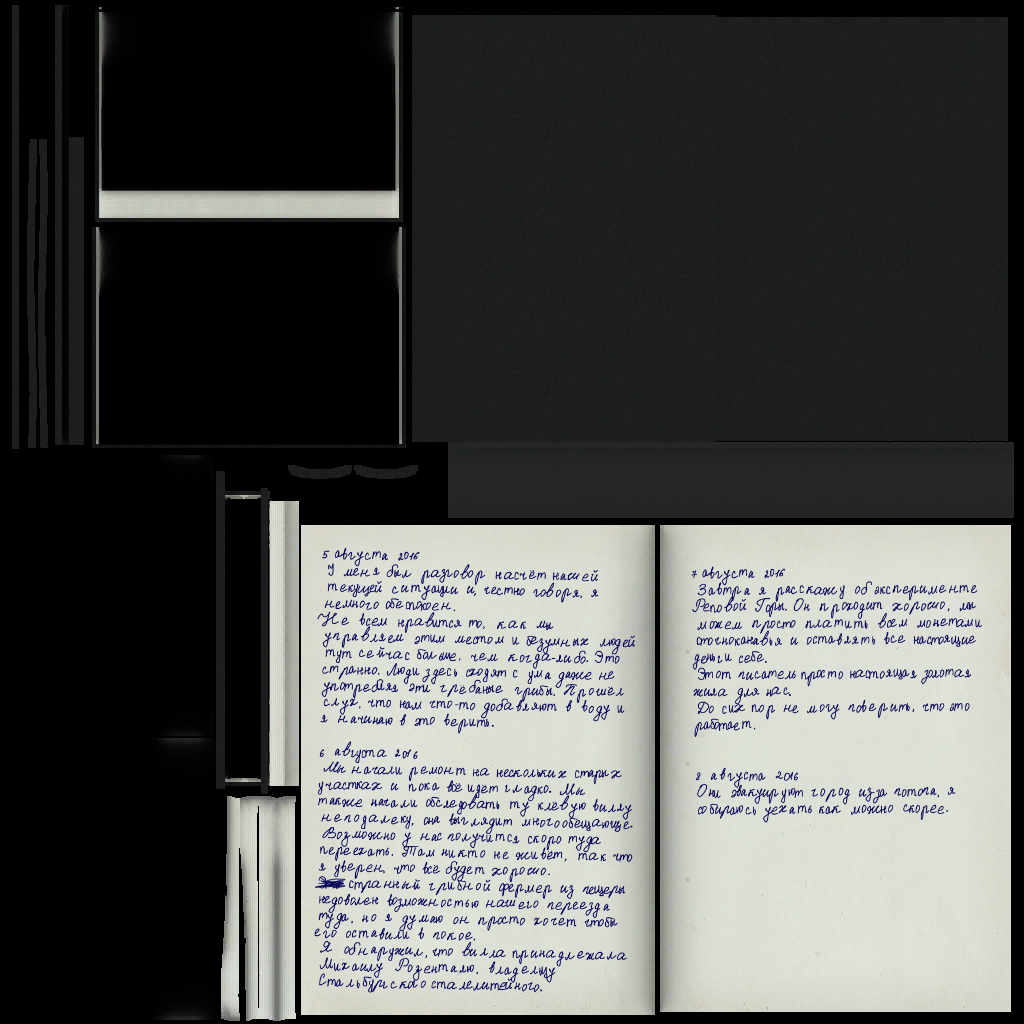 5 августа 2016
У меня был разговор насчёт нашей
текущей ситуации и, честно говоря, я
немного обеспокоен.
Не всем нравится то, как мы
управляем этим местом и безумных людей
тут сейчас больше, чем когда-либо. Это
странно. Люди здесь сходят с ума даже не
употребляя эти грёбаные грибы. Прошёл
слух, что нам что-то добавляют в воду и
я начинаю в это верить.
6 августа 2016
Мы начали ремонт на нескольких старых
участках и пока всё идет гладко. Мы
также начали обследовать ту клёвую виллу
неподалеку, она выглядит многообещающе.
Возможно у нас получится скоро туда
переехать. Там никто не живёт, так что
я уверен, что всё будет хорошо.
странный грибной фермер из пещеры
недоволен возможностью нашего переезда
туда, но я думаю он просто хочет чтобы
его оставили в покое.
Я обнаружил, что вилла принадлежала
Михаилу Розенталю, владельцу
Стальбургского сталелитейного.
7 августа 2016
Завтра я расскажу об эксперименте
Реповой Горы. Он проходит хорошо, мы
можем просто платить всем монетами
и оставлять все настоящие
деньги себе.
Этот писатель просто настоящая золотая
жила для нас.
До сих пор не могу поверить, что это
работает.
8 августа 2016
Они эвакуируют город изза потопа, я
собираюсь уехать как можно скорее.